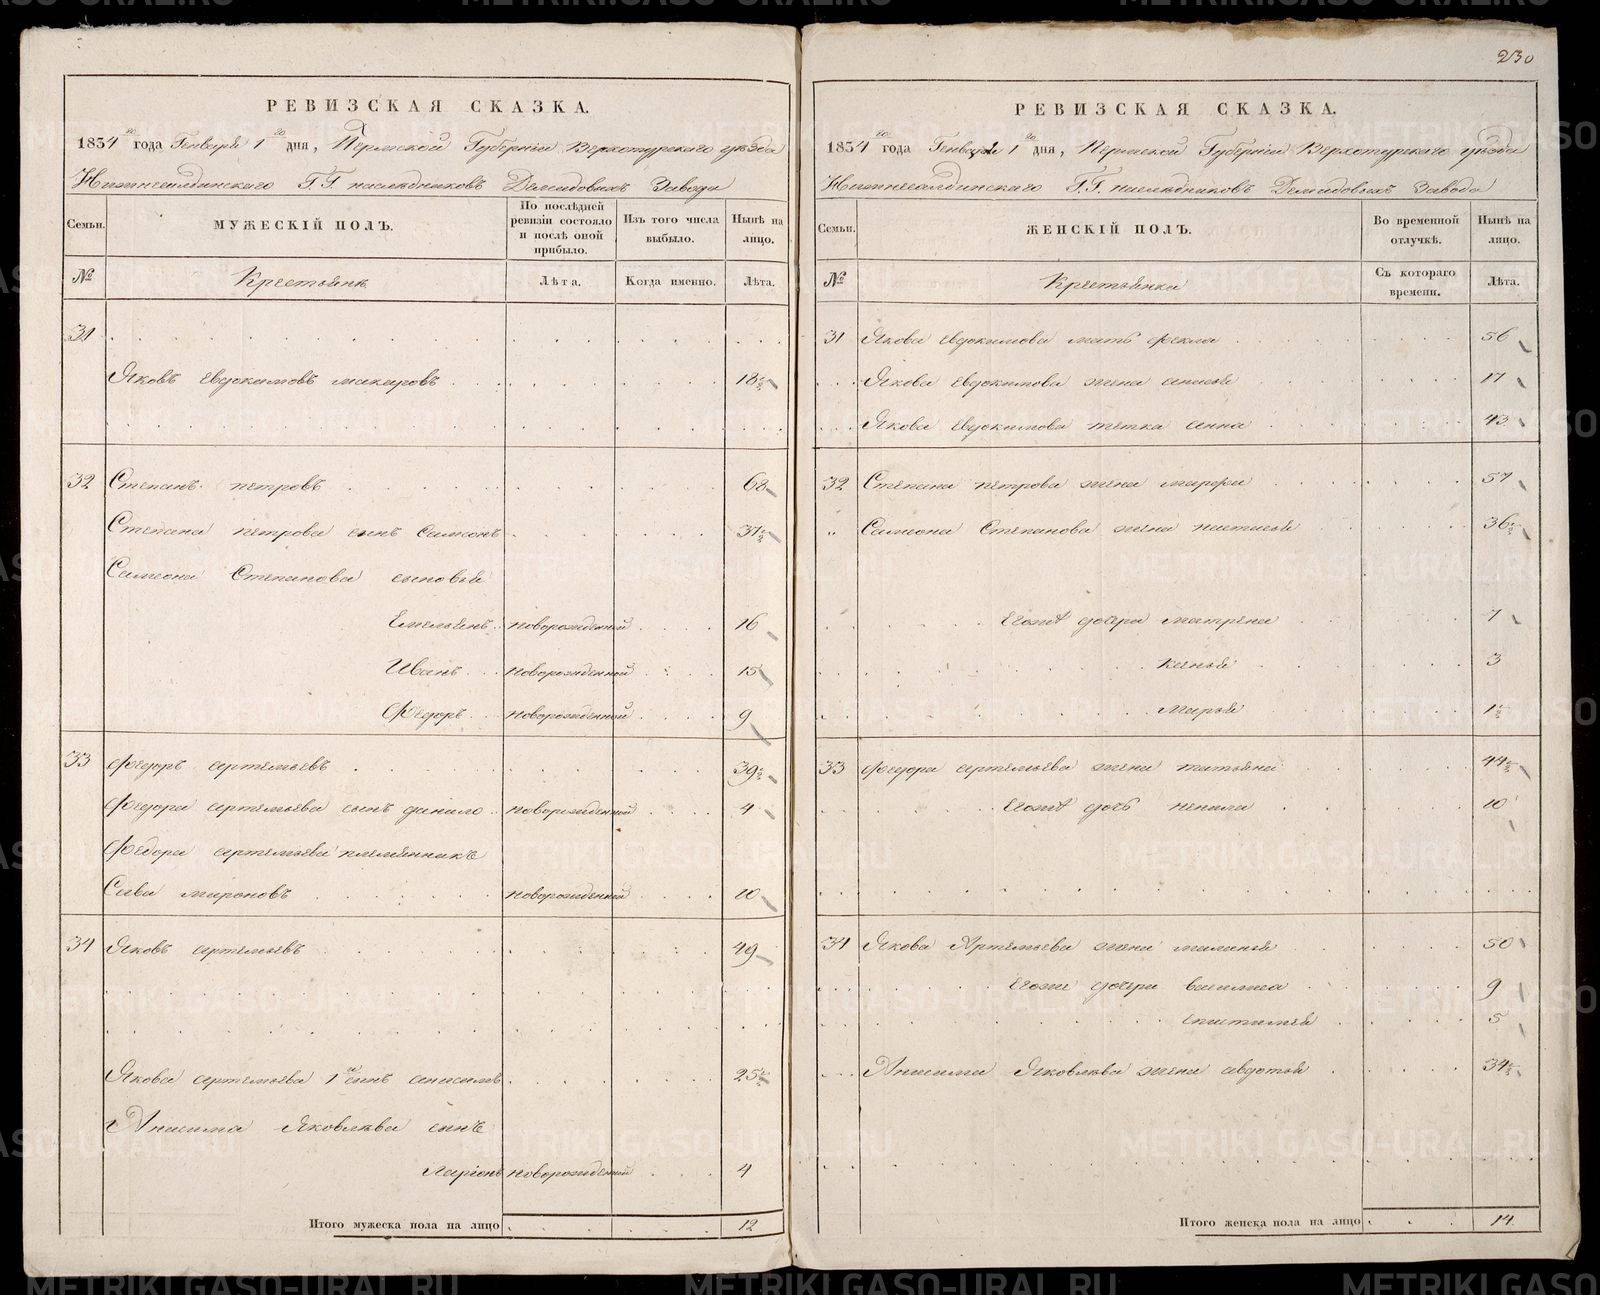 230
РЕВИЗСКАЯ СКАЗКА.
1834 го года Генваря 1 го дня, Пермской Губерніи Верхотурскаго уезда
Нижнесалдинскаго Г.Г. наследниковъ Демидовыхъ Завода
Семьи. МУЖЕСКІЙ ПОЛЪ. По послѣдней ревизіи состояло и послѣ оной прибыло. Изъ того числа выбыло. Нынѣ на лицо.
№ Крестьяне Лѣта. Когда именно. Лѣта.
31
Яковъ Евдокимовъ макаровъ 18 1/2
32 Степанъ петровъ 68
Степана петрова сынъ Самсонъ 37 1/2
Самсона Степанова сыновья
Емельянъ новорожденной 16
Иванъ новорожденной 15
Федоръ новорожденной 9
33 Федоръ артемьевъ 39 1/2
Федора артемьева сынъ данило новорожденной 4
Федора артемьева племянникъ
Сава мироновъ новорожденной 10
34 Яковъ артемьевъ 49
Якова артемьева 1 й сынъ анисимъ 25 1/2
Анисима Яковлева сынъ
Ларіонъ новорожденной 4
Итого мужеска пола на лицо 12
РЕВИЗСКАЯ СКАЗКА.
1834 го года Генваря 1 го дня, Пермской Губерніи Верхотурскаго уезда
Нижнесалдинскаго Г.Г. наследниковъ Демидовыхъ Завода
Семьи. ЖЕНСКІЙ ПОЛЪ. Во временной отлучкѣ. Нынѣ на лицо.
№ Крестьянки Съ котораго времени. Лѣта.
31 Якова Евдокимова мать фекла 56
Якова Евдокимова жена анисья 17
Якова Евдокимова тетка анна 43
32 Степана петрова жена марфа 57
" Самсона Степанова жена настасья 36 1/2
Егожъ дочери матрена 7
Ксенья 3
Марья 1 1/2
33 Федора артемьева жена татьяна 44 1/2
Егожъ дочь ненила 10
34 Якова Артемьева жена маланья 50
Егоже дочери василиса 9
апистимея 5
Анисима Яковлева жена авдотья 34 1/2
Итого женска пола на лицо 14
METRIKI.GASO-URAL.RU